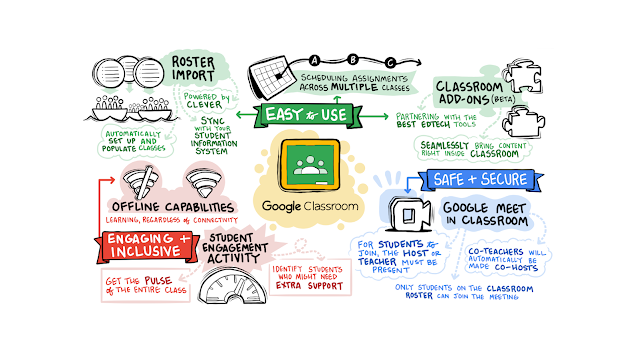 ROSTER
IMPORT
POWERED by
CLEVER
AUTOMATICALLY
SET UP AND
POPULATE CLASSES
SYNC
WITH YOUR
STUDENT
INFORMATION
SYSTEM
A B C
SCHEDULING ASSIGNMENTS
ACROSS MULTIPLE CLASSES
EASY to USE
CLASSROOM
ADD-ONS (BETA)
PARTNERING WITH THE
BEST EDTECH TOOLS
SEAMLESSLY BRING CONTENT
RIGHT INSIDE CLASSROOM
Google Classroom
OFFLINE CAPABILITIES
LEARNING, REGARDLESS of CONNECTIVITY
ENGAGING +
INCLUSIVE
STUDENT
ENGAGEMENT
ACTIVITY
GET THE PULSE
of THE ENTIRE CLASS
IDENTIFY STUDENTS
WHO MIGHT NEED
EXTRA SUPPORT
SAFE + SECURE
GOOGLE MEET
IN CLASSROOM
FOR STUDENTS to
JOIN, THE HOST OR
TEACHER MUST BE
PRESENT
CO-TEACHERS WILL
AUTOMATICALLY BE
MADE CO-HOSTS
ONLY STUDENTS ON THE CLASSROOM
ROSTER CAN JOIN THE MEETING